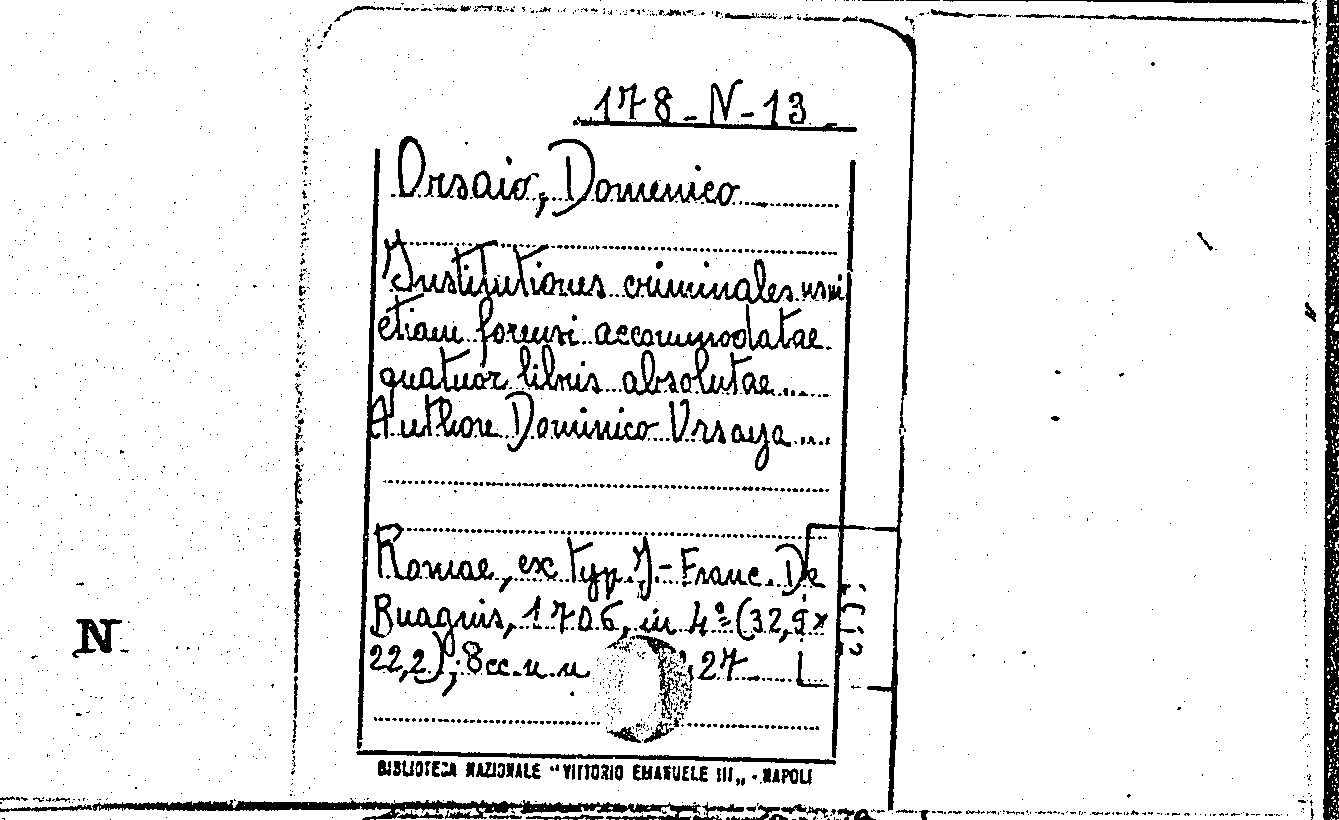 178-N-13
Orsaio, Domenico
Institutiones criminales usui
etiam forensi accommodatae
quatuor libris absolutae...
Authore Dominico Ursaya...
Romae, ex typ. J.-Franc. De
Buagnis, 1706, in 4º (32,5x
22,2); 8cc.n.n 27
N
BIBLIOTECA NAZIONALE "VITTORIO EMANUELE III" - NAPOLI